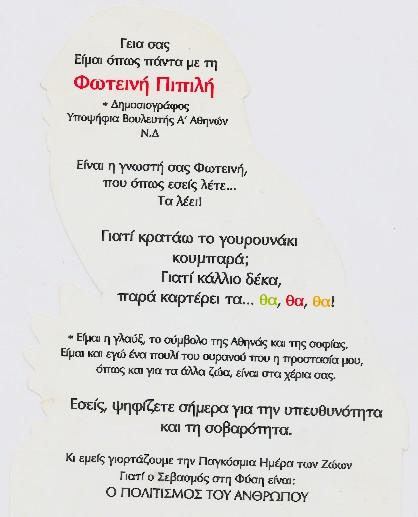 Γεια σας
Είμαι όπως πάντα με τη
Φωτεινή Πιπιλή
* Δημοσιογράφος
Υποψήφια Βουλευτής Α' Αθηνών
Ν.Δ
Είναι η γνωστή σας Φωτεινή,
που όπως εσείς λέτε...
Τα λέει!
Γιατί κρατάω το γουρουνάκι
κουμπαρά;
Γιατί κάλλιο δέκα,
παρά καρτέρει τα... θα, θα, θα!
* Είμαι η γλαύξ, το σύμβολο της Αθηνάς και της σοφίας.
Είμαι και εγώ ένα πουλί του ουρανού που η προστασία μου,
όπως και για τα άλλα ζώα, είναι στα χέρια σας.
Εσείς, ψηφίζετε σήμερα για την υπευθυνότητα
και τη σοβαρότητα.
Κι εμείς γιορτάζουμε την Παγκόσμια Ημέρα των Ζώων
Γιατί ο Σεβασμός στη Φύση είναι:
Ο ΠΟΛΙΤΙΣΜΟΣ ΤΟΥ ΑΝΘΡΩΠΟΥ